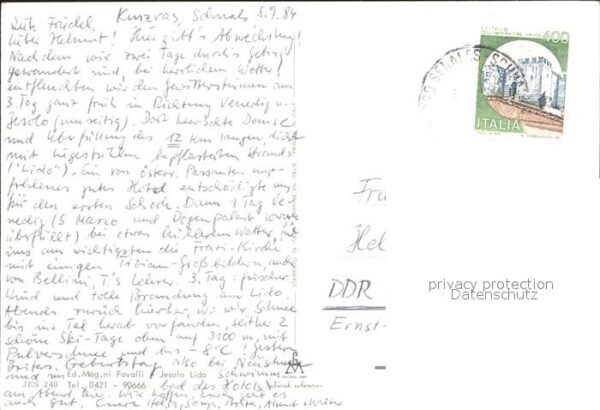 Kurzras, Schnals 8.9.84
Liebe Friedel,
lieber Helmut! Hier gibt's Abwechslung!
Nachdem wir zwei Tage durchs Gebirge
gewandert sind, bei herrlichem Wetter,
entfleuchten wir den Gewitterstürmen am
3. Tag ganz früh in Richtung Venedig u.
Jesolo (umseitig). Dort herrschte Dunst
und Überfüllung des 12 km langen, dicht
mit Liegestühlen bepflasterten Strands
("Lido"). Ein von österr. Passanten emp-
fohlenes gutes Hotel entschädigte uns
für den ersten Schock. Dann 1 Tag Ve-
nedig (S. Marco und Dogenpalast
überfüllt) bei etwas Wetter, für
uns am wichtigsten die Frari-Kirche
mit einigen Tizian-Großbildern, andere
von Bellini, T.'s Lehrer. 3. Tag: frischer
Wind und tolle Brandung am Lido.
Abends zurück hierher, wo wir Schnee
bis ins Tal herab vorfanden, seither 2
schöne Ski-Tage oben auf 3100 m, mit
Pulverschnee und bis -8°C! Gestern
Brittes Geburtstag also bei Neuschnee
und im Schwimm-
bad des Hotels
am Abend. Wir hoffen, Euch geht es
auch gut, Eure Helga, Sonja, Britta, Almut + Walter
Ed. Mag.ni Favalli Jesolo Lido
JES 240 Tel. 0421 - 90666
400
ITALIA
DDR
Ernst-
privacy protection
Datenschutz